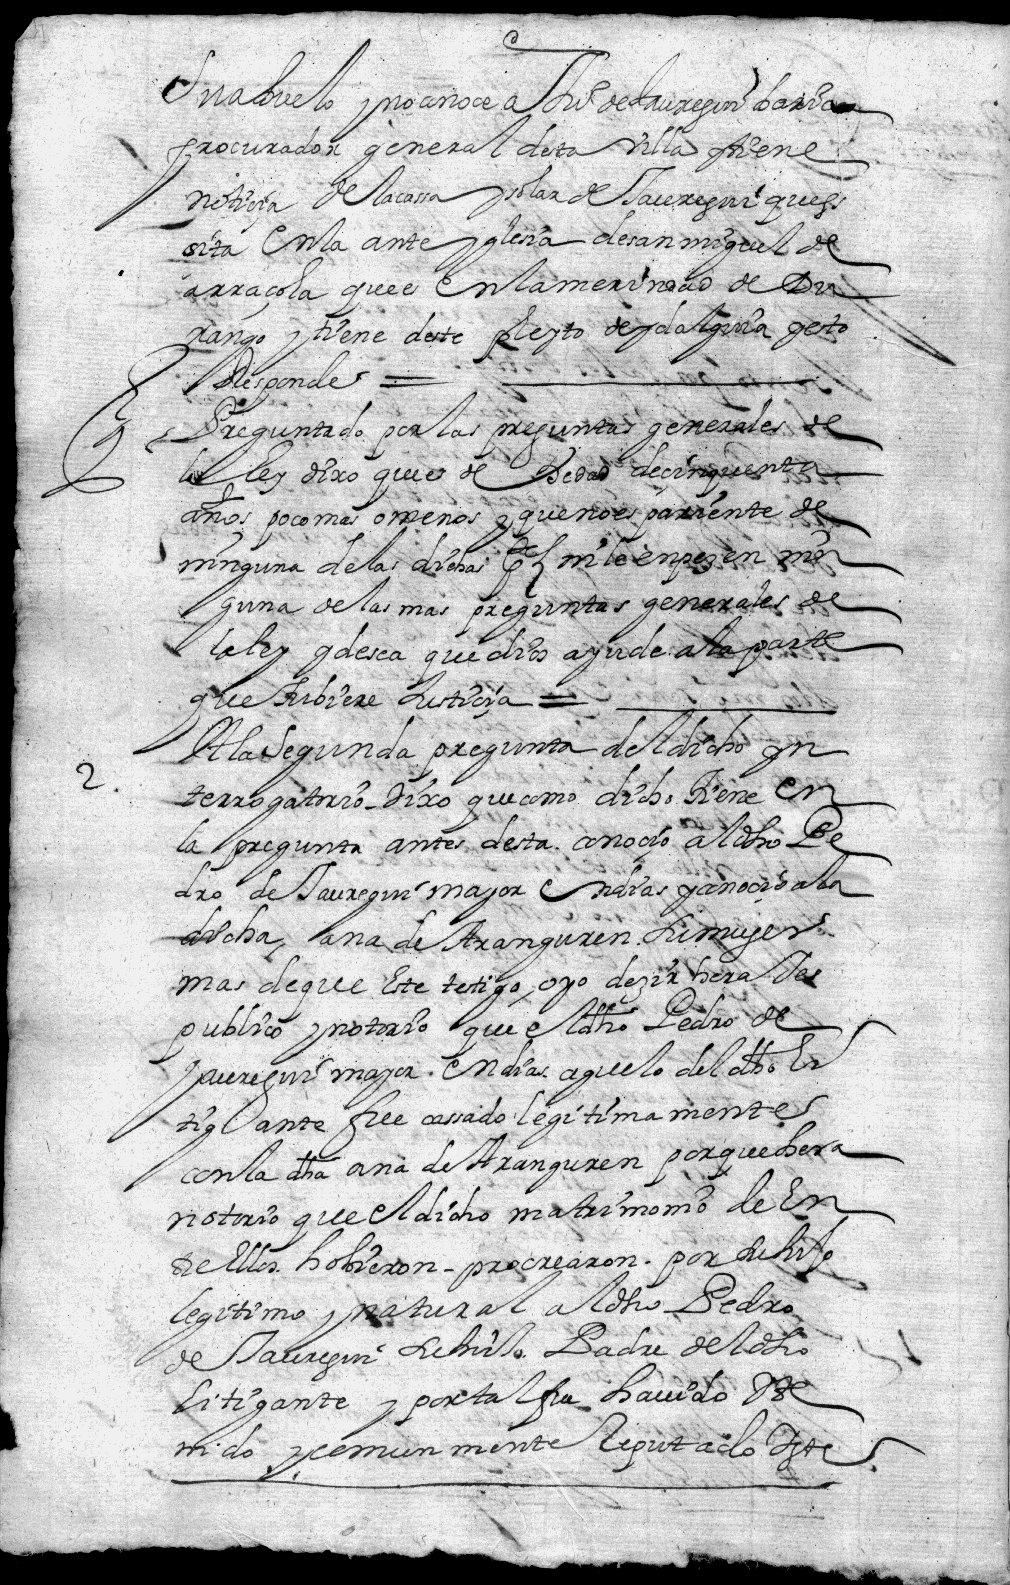 su abuelo y no conoce a de Jauregui barria
procurador general desta villa y tiene
noticia de la cassa y solar de Jauregui que es
sita en la ante yglesia de san miguel de
arraçola que es en la merindad de Du
rango y tiene deste pleyto de ydalguia y esto
Responde =
Preguntado por las preguntas generales de
la ley dixo que es de hedad de cinquenta
años poco mas o menos y que no es pariente de
ninguna de las dichas ptes ni le enpezen nin
guna de las mas preguntas generales de
la ley y desea que dios ayude a la parte
que tubiere Justicia =
2. A la segunda pregunta del dicho yn
terrogatorio dixo que como dicho tiene en
la pregunta antes desta conocio al dho Pe
dro de Jauregui mayor en dias y conocio a la
dicha ana de Aranguren su muger
mas de que este testigo oyo dezir hera
publico y notorio que el dho Pedro de
Jauregui mayor en dias aguelo del dho li
tigante fue cassado legitimamente
con la dha ana de Aranguren porque hera
notorio que el dicho matrimonio de En
tre Ellos hobieron procrearon por su hijo
legitimo y natural al dho Pedro
de Jauregui su hijo Padre del dho
litigante y por tal fue havido te
nido y comunmente Reputado Este